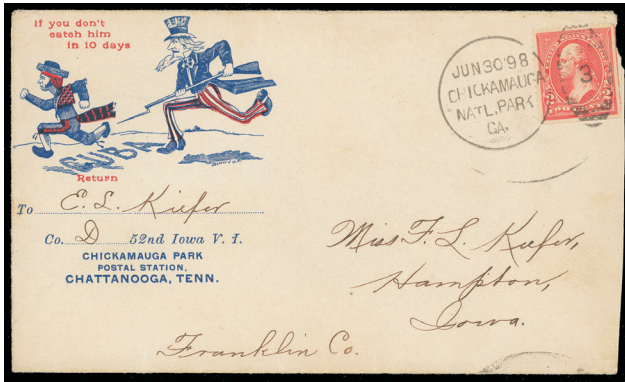 If you don't
catch him
in 10 days
CUBA
Return
To E. L. Kiefer
Co. D 52nd Iowa V. I.
CHICKAMAUGA PARK
POSTAL STATION,
CHATTANOOGA, TENN.
JUN 30 '98
CHICKAMAUGA
NAT'L. PARK
GA.
3
2 TWO CENTS 2
Miss F. L. Kiefer,
Hampton,
Iowa.
Franklin Co.